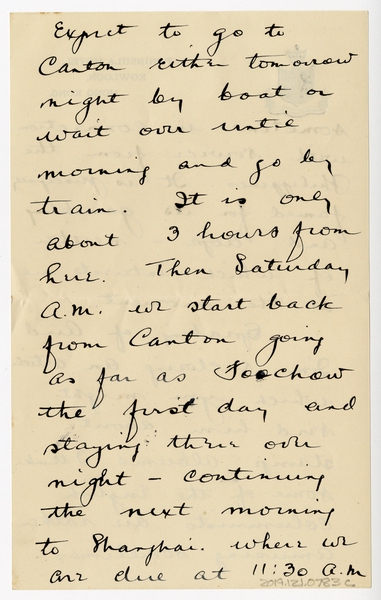 Expect to go to
Canton either tomorrow
night by boat or
wait over until
morning and go by
train. It is only
about 3 hours from
here. Then Saturday
A.M. we start back
from Canton going
as far as Foochow
the first day and
staying there over
night - continuing
the next morning
to Shanghai. where we
are due at 11:30 A.M
2019.121.0783 c